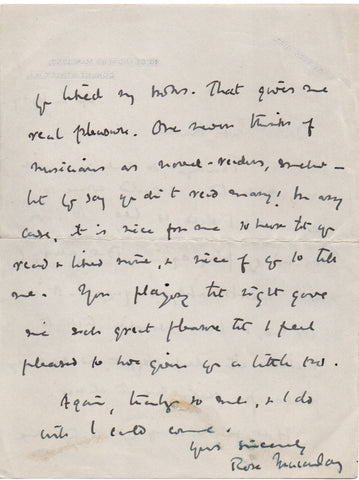 you liked my books. That gives me
real pleasure. One never thinks of
musicians as novel-readers, somehow –
but you say you don't read many! In any
case, it is nice for me to know that you
read & liked mine, & nice of you to tell
me. Your playing that night gave
me such great pleasure that I feel
pleased to have given you a little too.
Again, thank you so much, & I do
wish I could come.
Yours sincerely
Rose Macaulay